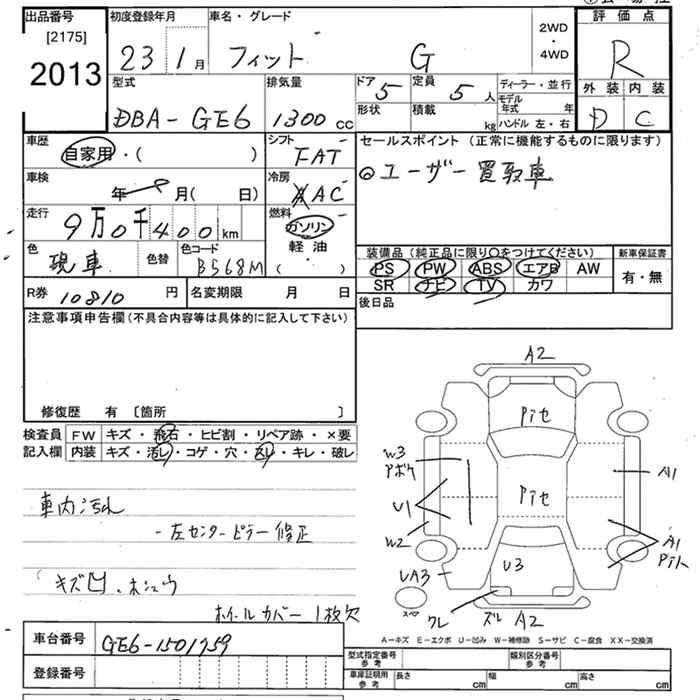 出品番号
[2175]
2013
初度登録年月
23 1月
車名・グレード
フィット G
2WD
・
4WD
評価点
R
外装 内装
D C
型式
DBA-GE6
排気量
1300 cc
ドア
5
定員
5人
形状
積載
kg
ディーラー・並行
モデル年式 年
ハンドル 左・右
車歴
自家用・( )
シフト
FAT
セールスポイント(正常に機能するものに限ります)
◎ユーザー買取車
車検
年 月( 日)
冷房
AAC
走行
9万0千400km
燃料
ガソリン
軽油
( )
色
現車
色替
色コード
B568M
装備品(純正品に限り○をつけてください)
新車保証書
PS PW ABS エアB AW
SR ナビ TV カワ
有・無
R券 10810 円
名変期限 月 日
後日品
注意事項申告欄(不具合内容等は具体的に記入して下さい)
修復歴 有 〔箇所 〕
検査員 FW キズ・飛石・ヒビ割・リペア跡・×要
記入欄 内装 キズ・汚レ・コゲ・穴・スレ・キレ・破レ
車内汚れ
-左センターピラー修正
キズ凹、ホシュウ
ホイールカバー1枚欠
A2
Pitセ
W3
アボケ
U1
Pitセ
A1
W2
A1
Pit
UA3
U3
スペア
ワレ
ズレ A2
A-キズ E-エクボ U-凹み W-補修跡 S-サビ C-腐食 XX-交換済
車台番号 GE6-1501759
登録番号
型式指定番号
参考
類別区分番号
参考
車庫証明用
参考
長さ cm 幅 cm 高さ cm